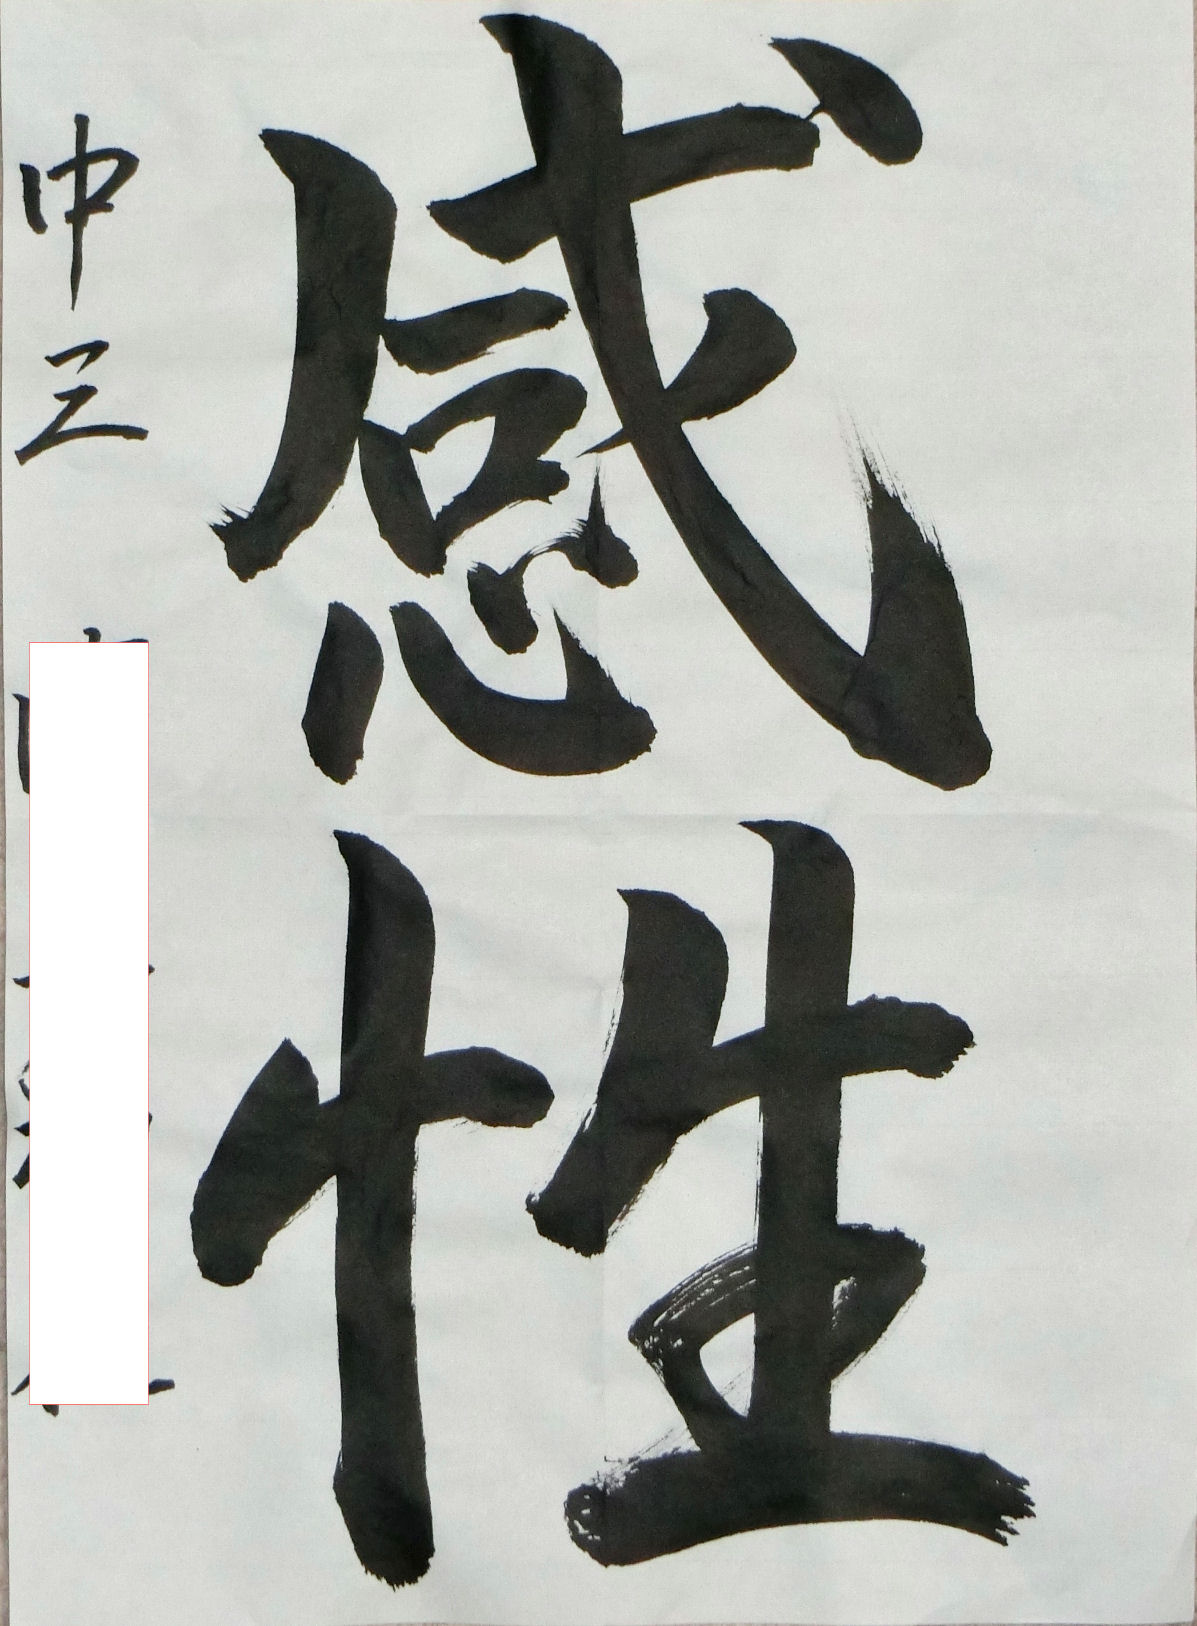 感性
中三